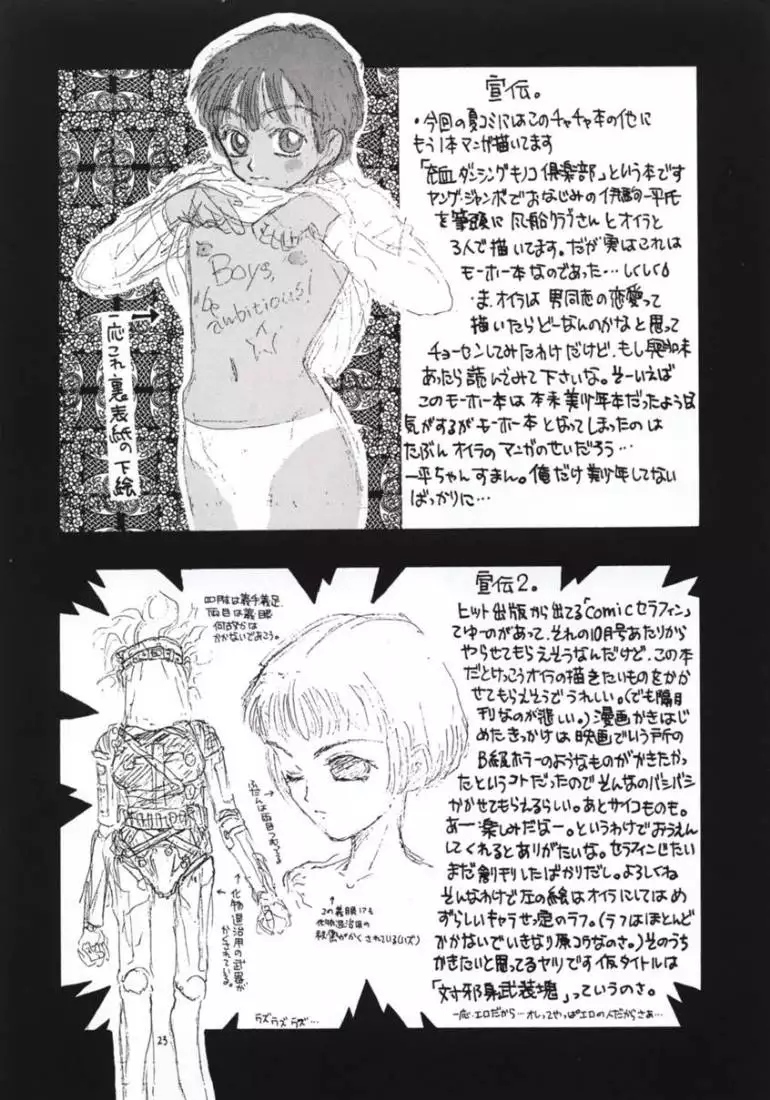 宣伝。
・今回の夏コミにはこのチャチャ本の他に
もう1本マンガ描いてます
ダンシングキノコ倶楽部」という本です
ヤング・ジャンボでおなじみの伊駒一平氏
を筆頭に風船クラブさんとオイラと
3人で描いてます。だが実はこれは
モーホー本なのであった…しくしく
ま、オイラは男同志の恋愛って
描いたらどーなんのかなと思って
チョーセンしてみたわけだけど、もし興味
あったら読んでみて下さいな。そーいえば
このモーホー本は本来美少年本だったような
気がするがモーホー本となってしまったのは
たぶんオイラのマンガのせいだろう…
一平ちゃんすまん。俺だけ美少年してない
ばっかりに…
Boys,
be
ambitious!
一応これ裏表紙の下絵
宣伝2。
ヒット出版から出てる「comicセラフィン」
てゆーのがあって、それの10月号あたりから
やらせてもらえそうなんだけど、この本
だとけっこうオイラの描きたいものをかか
せてもらえそうでうれしい。(でも隔月
刊なのが悲しい。)漫画かきはじ
めたきっかけは映画でいう所の
B級ホラーのようなものがかきたかっ
たというコトだったのでそんなのバシバシ
かかせてもらえるらしい。あとサイコものも。
あー楽しみだなー。というわけでおうえん
してくれるとありがたいな。セラフィンじたい
まだ創刊したばかりだし。よろしくね
そんなわけで左の絵はオイラにしてはめ
ずらしいキャラせってい定のラフ。(ラフはほとんど
かかないでいきなり原コウなのさ。)そのうち
かきたいと思ってるヤツです仮タイトルは
「対邪身武装塊」っていうのさ。
一応、エロだから…オレってやっぱエロの人だからさぁ…
四肢は義手義足
両目は義眼
何故かは
かかないでおこう。
ふだんは両目つむってる
↑
この義眼にも
化物退治用の
秘密がかくされている(ハズ)
↑化物退治用の武器が
かくされている。
ラズラズラズ…
23